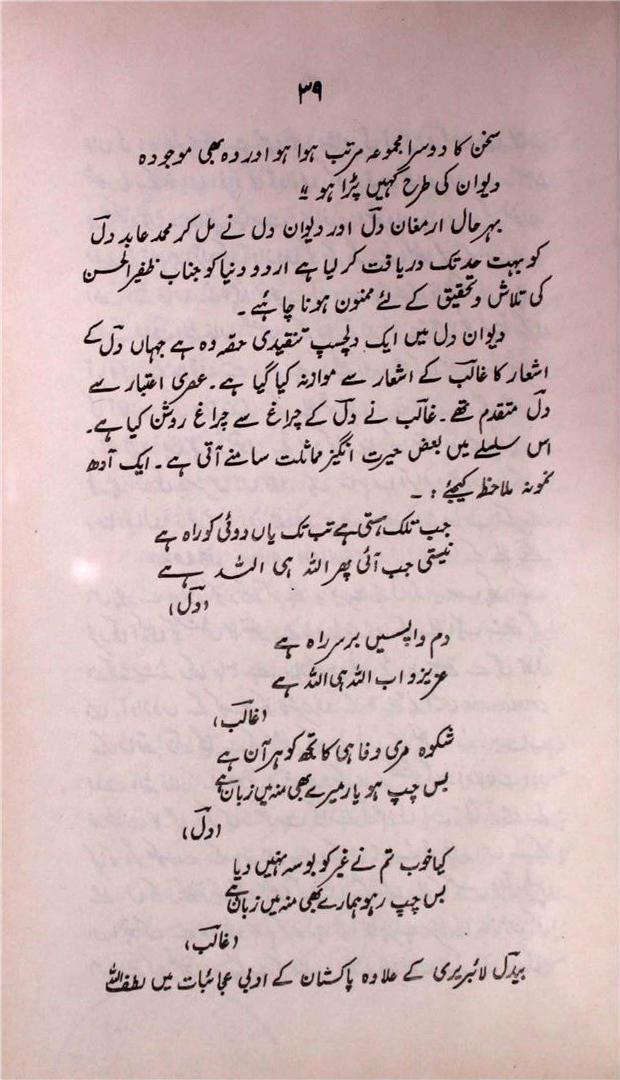 ۳۹
سخن کا دوسرا مجموعہ مرتب ہوا ہو اور وہ بھی موجودہ
دیوان کی طرح کہیں پڑا ہو "
بہرحال ارمغان دلؔ اور دیوان دل نے مل کر محمد عابد دلؔ
کو بہت حد تک دریافت کر لیا ہے اردو دنیا کو جناب ظفیر الحسن
کی تلاش وتحقیق کے لئے ممنون ہونا چاہئیے ۔
دیوان دل میں ایک دلچسپ تنقیدی حصہ وہ ہے جہاں دلؔ کے
اشعار کا غالبؔ کے اشعار سے موازنہ کیا گیا ہے ۔ عصری اعتبار سے
دلؔ متقدم تھے ۔ غالبؔ نے دلؔ کے چراغ سے چراغ روشن کیا ہے۔
اس سلسلے میں بعض حیرت انگیز مماثلت سامنے آتی ہے ۔ ایک آدھ
نمونہ ملاحظ کیجئے : ۔
جب تلک ہستی ہے تب تک یاں دوئی کو راہ ہے
نیستی جب آئی پھر اللہ ہی اللہ ہے
(دلؔ)
دم واپسیں بر سر راہ ہے
عزیزو اب اللہ ہی اللہ ہے
(غالبؔ)
شکوہ مری وفا ہی کا تجھ کو ہر آن ہے
بس چپ ہو یار میرے بھی منہ میں زبان ہے
(دلؔ)
کیا خوب تم نے غیر کو بوسہ نہیں دیا
بس چپ رہو ہمارے بھی منہ میں زبان ہے
(غالبؔ)
بیدلؔ لائبریری کے علاوہ پاکستان کے ادبی عجائبات میں لطف اللہ